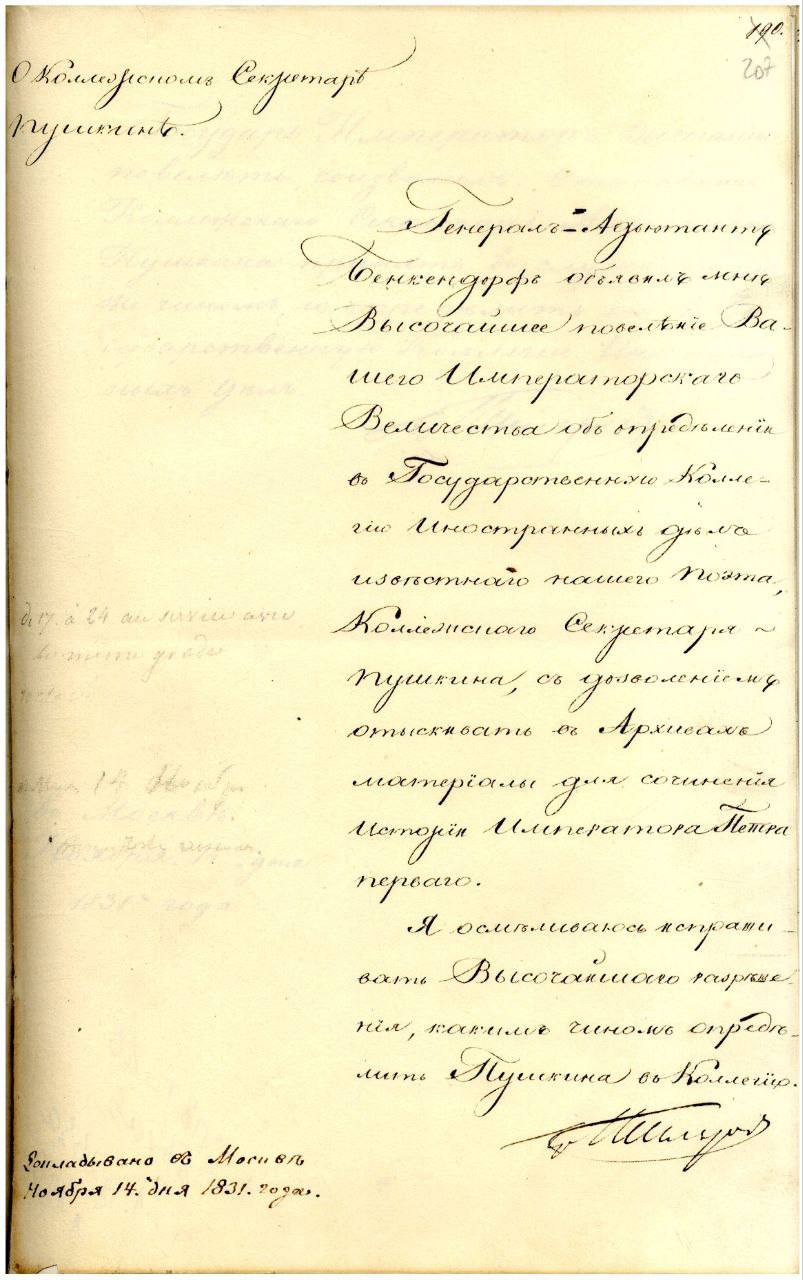 190.
207
О Коллежскомъ Секретарѣ
Пушкинѣ.
Генералъ-Адъютантъ
Бенкендорфъ объявилъ мнѣ
Высочайшее повелѣніе Ва-
шего Императорскаго
Величества объ опредѣленіи
въ Государственную Колле-
гію Иностранныхъ дѣлъ
извѣстнаго нашего Поэта,
Коллежскаго Секретаря ~
Пушкина, съ дозволеніемъ
отыскивать въ Архивахъ
матеріалы для сочиненія
Исторіи Императора Петра
перваго.
Я осмѣливаюсь испраши-
вать Высочайшаго разрѣше-
нія, какимъ чиномъ опредѣ-
лить Пушкина въ Коллегію.
Докладывано въ Москвѣ
Ноября 14. дня 1831. года.